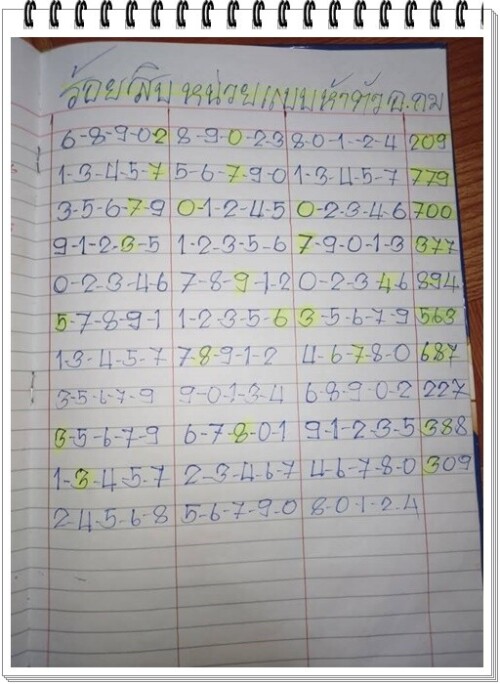 ร้อยสิบหน่วยแบบห้าตัว อ.ถม
6-8-9-0-2 8-9-0-2-3 8-0-1-2-4 209
1-3-4-5-7 5-6-7-9-0 1-3-4-5-7 779
3-5-6-7-9 0-1-2-4-5 0-2-3-4-6 700
9-1-2-3-5 1-2-3-5-6 7-9-0-1-3 377
0-2-3-4-6 7-8-9-1-2 0-2-3-4-6 894
5-7-8-9-1 1-2-3-5-6 3-5-6-7-9 563
1-3-4-5-7 7-8-9-1-2 4-6-7-8-0 687
3-5-6-7-9 9-0-1-3-4 6-8-9-0-2 227
3-5-6-7-9 6-7-8-0-1 9-1-2-3-5 388
1-3-4-5-7 2-3-4-6-7 4-6-7-8-0 309
2-4-5-6-8 5-6-7-9-0 8-0-1-2-4